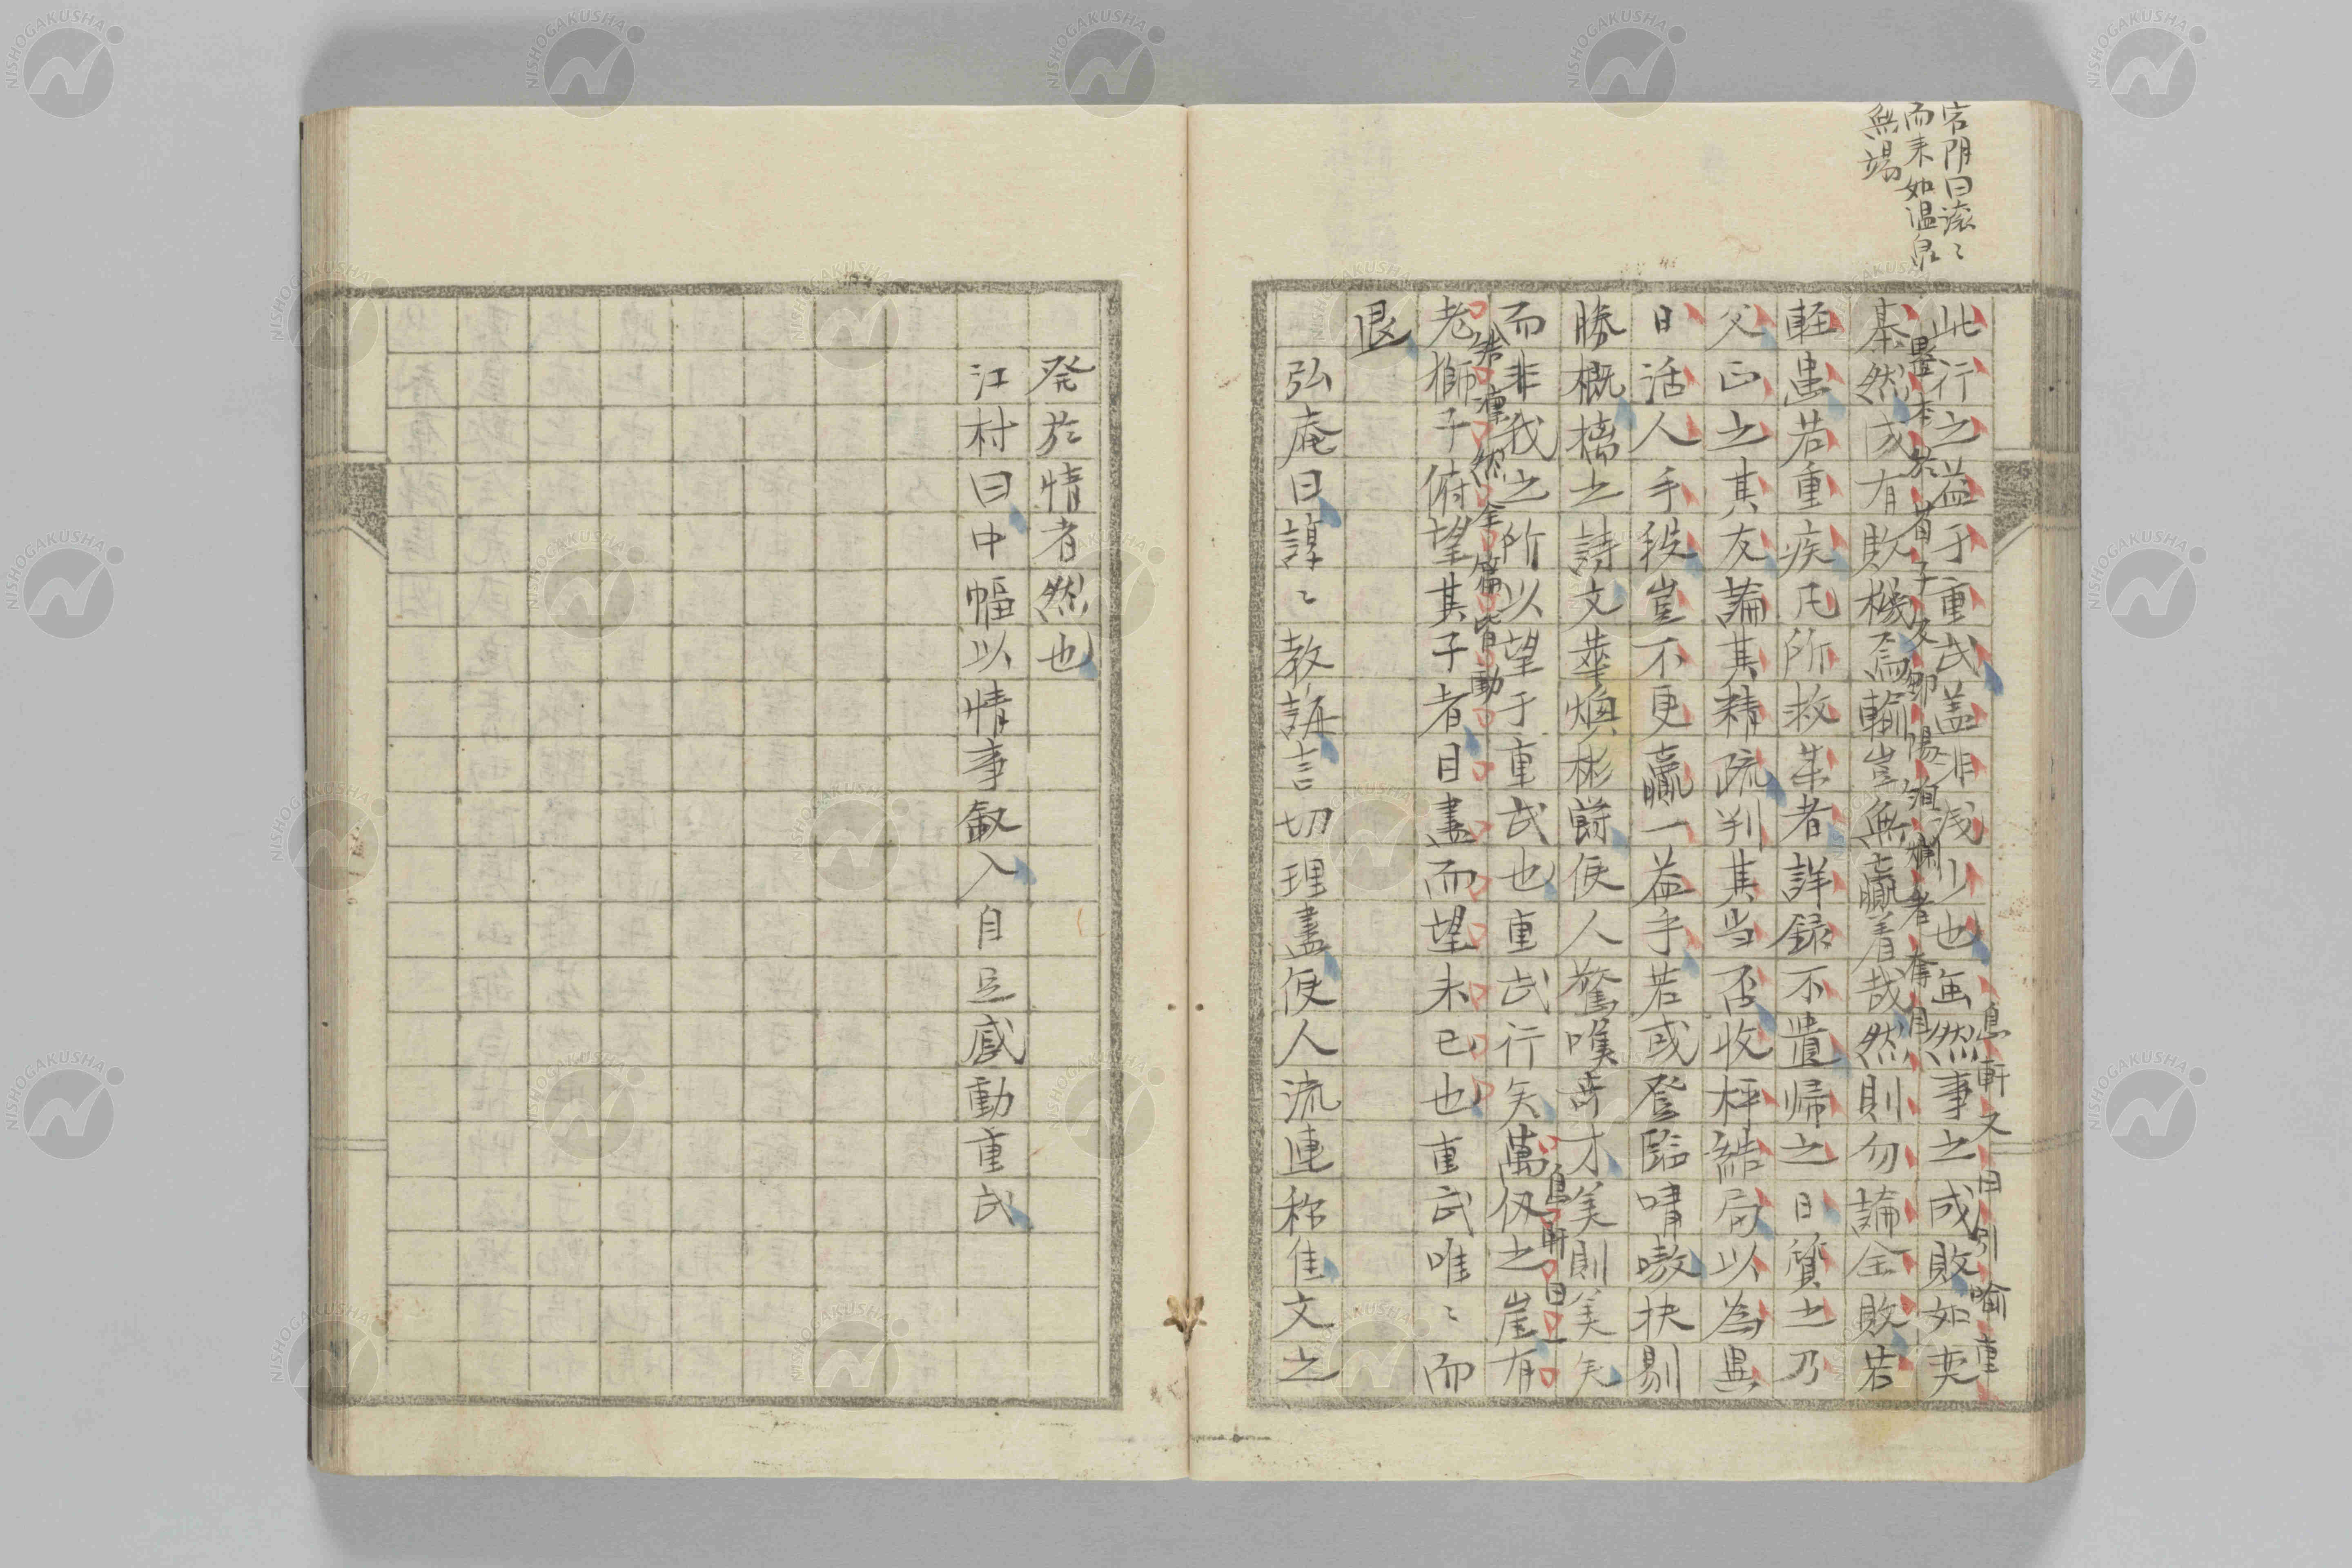 宕阴曰滚〻
而来如温泉
無竭
此行之益于重武盖非浅少也画然事之成敗如奕
息軒又曰引喻重
畳本於荀子及鄒陽絢爛者奪目
棊然成有敗機焉輸豈無贏着哉然則勿論全敗若
軽患若重疾凡所救柴者詳録不遺帰之日質之乃
父正之其友論其精疏判其当否收枰結局以為異
日活人手段豈不更贏一益手若或登臨嘯嗷抉剔
勝概摛之詩文華煥彬蔚使人驚嘆奇才美則美矣
息軒曰一
而非我之所以望于重武也重武行矣萬仭之崖有
結凛然全篇皆動
老獅子俯望其子者目盡而望未已也重武唯〻而
退
弘庵曰諄〻教誨言切理盡使人流連称佳文之
発於情者然也
江村曰中幅以情事叙入自足感動重武
NISHOGAKUSHA